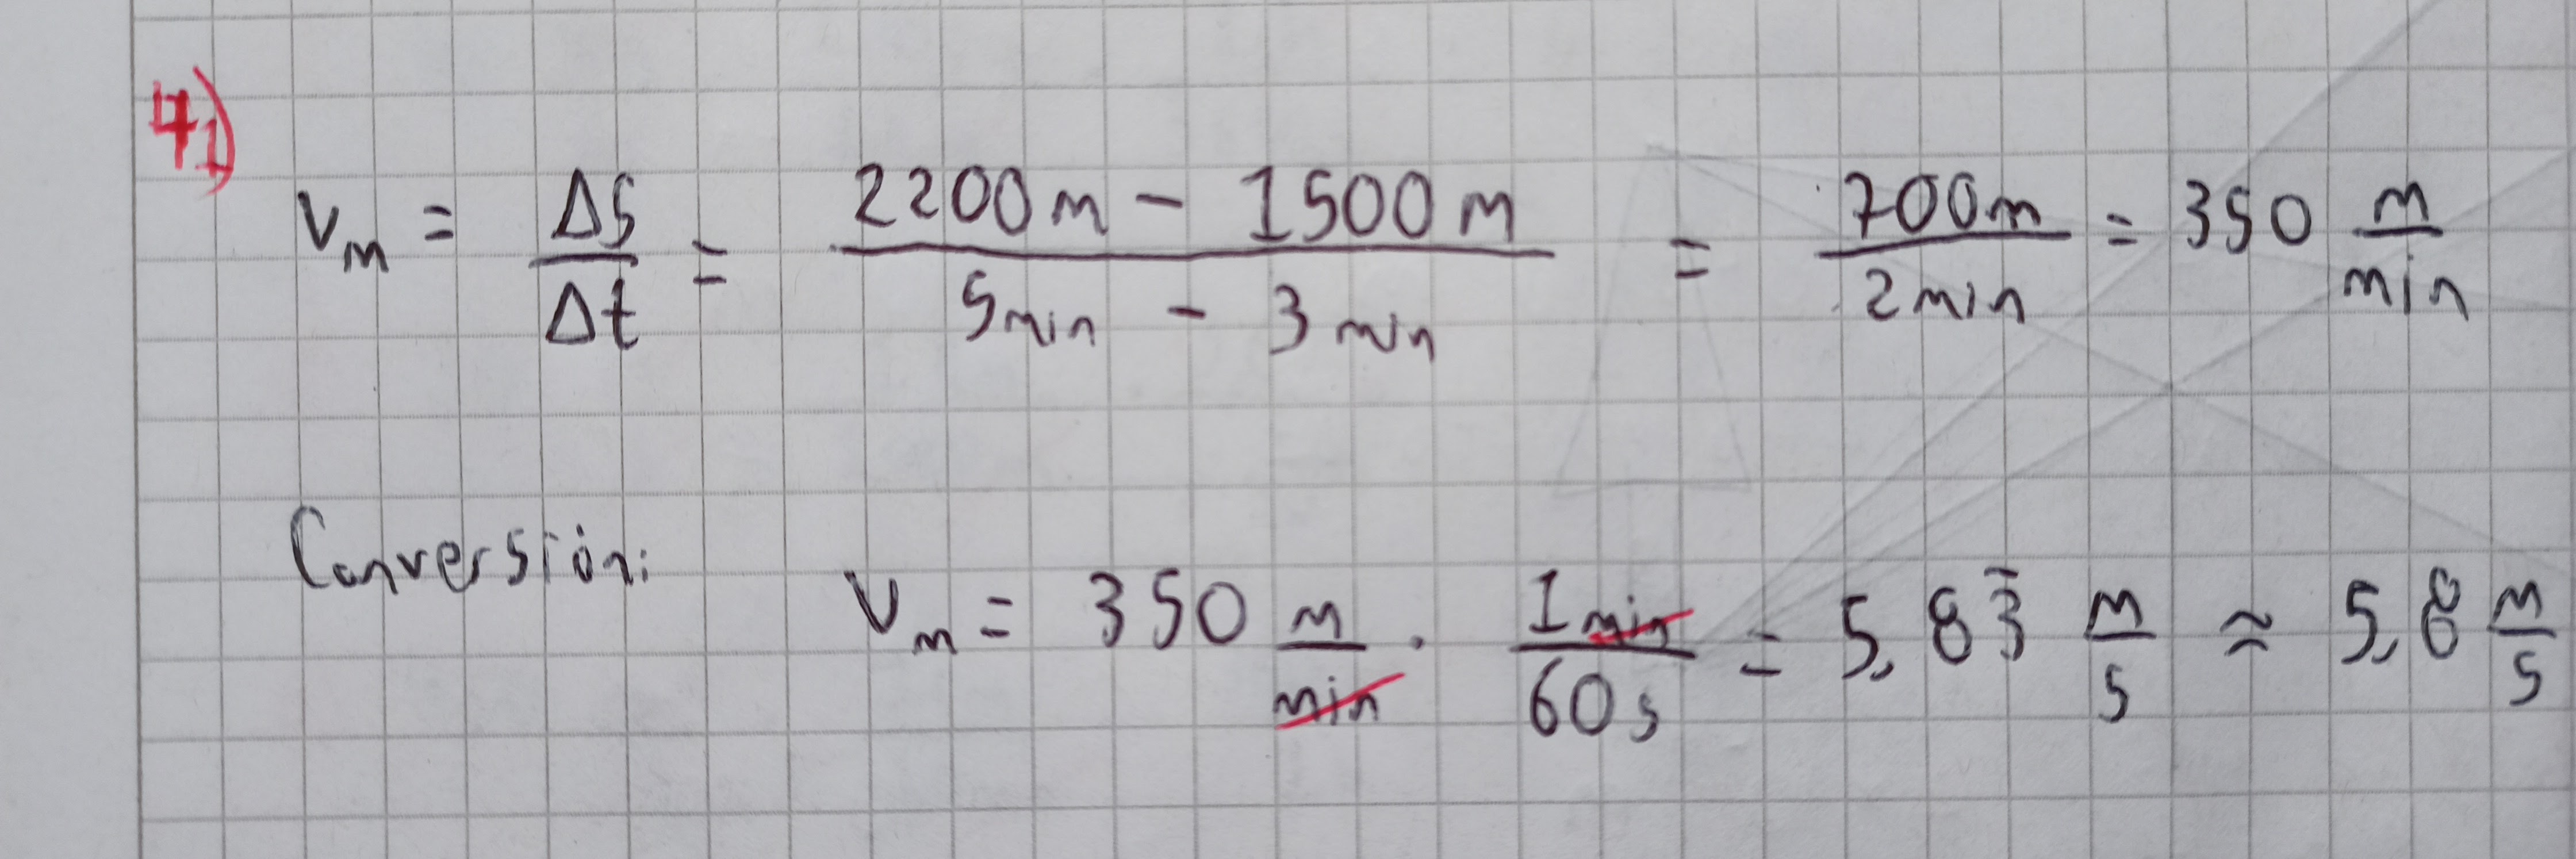 4)
Vm = ΔS/Δt = (2200m - 1500m)/(5min - 3min) = 700m/2min = 350 m/min
Conversión:
Vm = 350 m/min · 1min/60s = 5,83̄ m/s ≈ 5,8 m/s